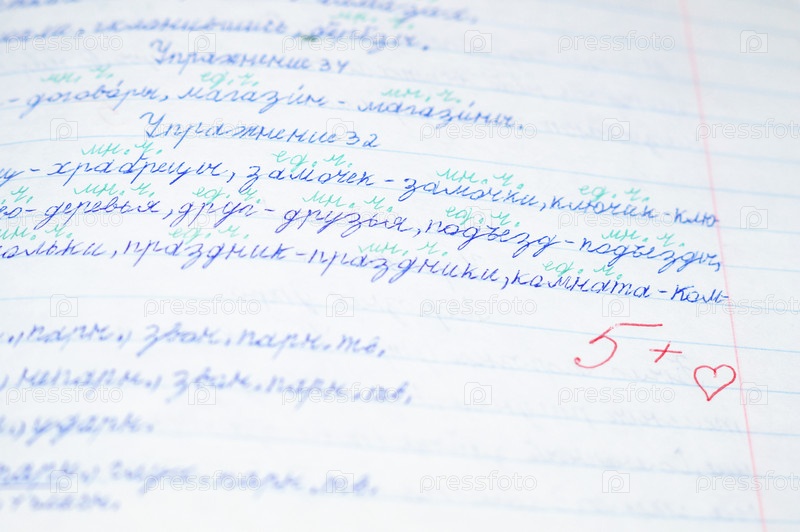 Упражнение 31
мн. ч. ед. ч. мн. ч.
- догово́ры, магази́н - магази́ны.
Упражнение 32
мн. ч. ед. ч. мн. ч. ед. ч.
у - храбрецы, замочек - замочки, ключик - клю
ч. мн. ч. ед. ч. мн. ч. ед. ч. мн. ч.
во - деревья, друг - друзья, подъезд - подъезды,
мн. ч. ед. ч. мн. ч. ед. ч.
ольки, праздник - праздники, комната - ком-
5+
парн., звон. парн. тв.
непарн., звон. парн. тв.
ударн.
парн. тв.
pressfoto